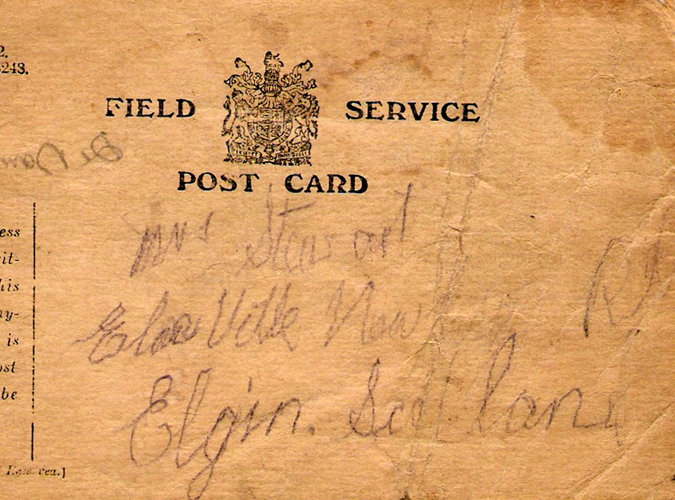 2.
243.
FIELD SERVICE
POST CARD
ess
it-
his
ny-
is
ost
be
Mrs Stewart
Ville
Elgin. Scotland